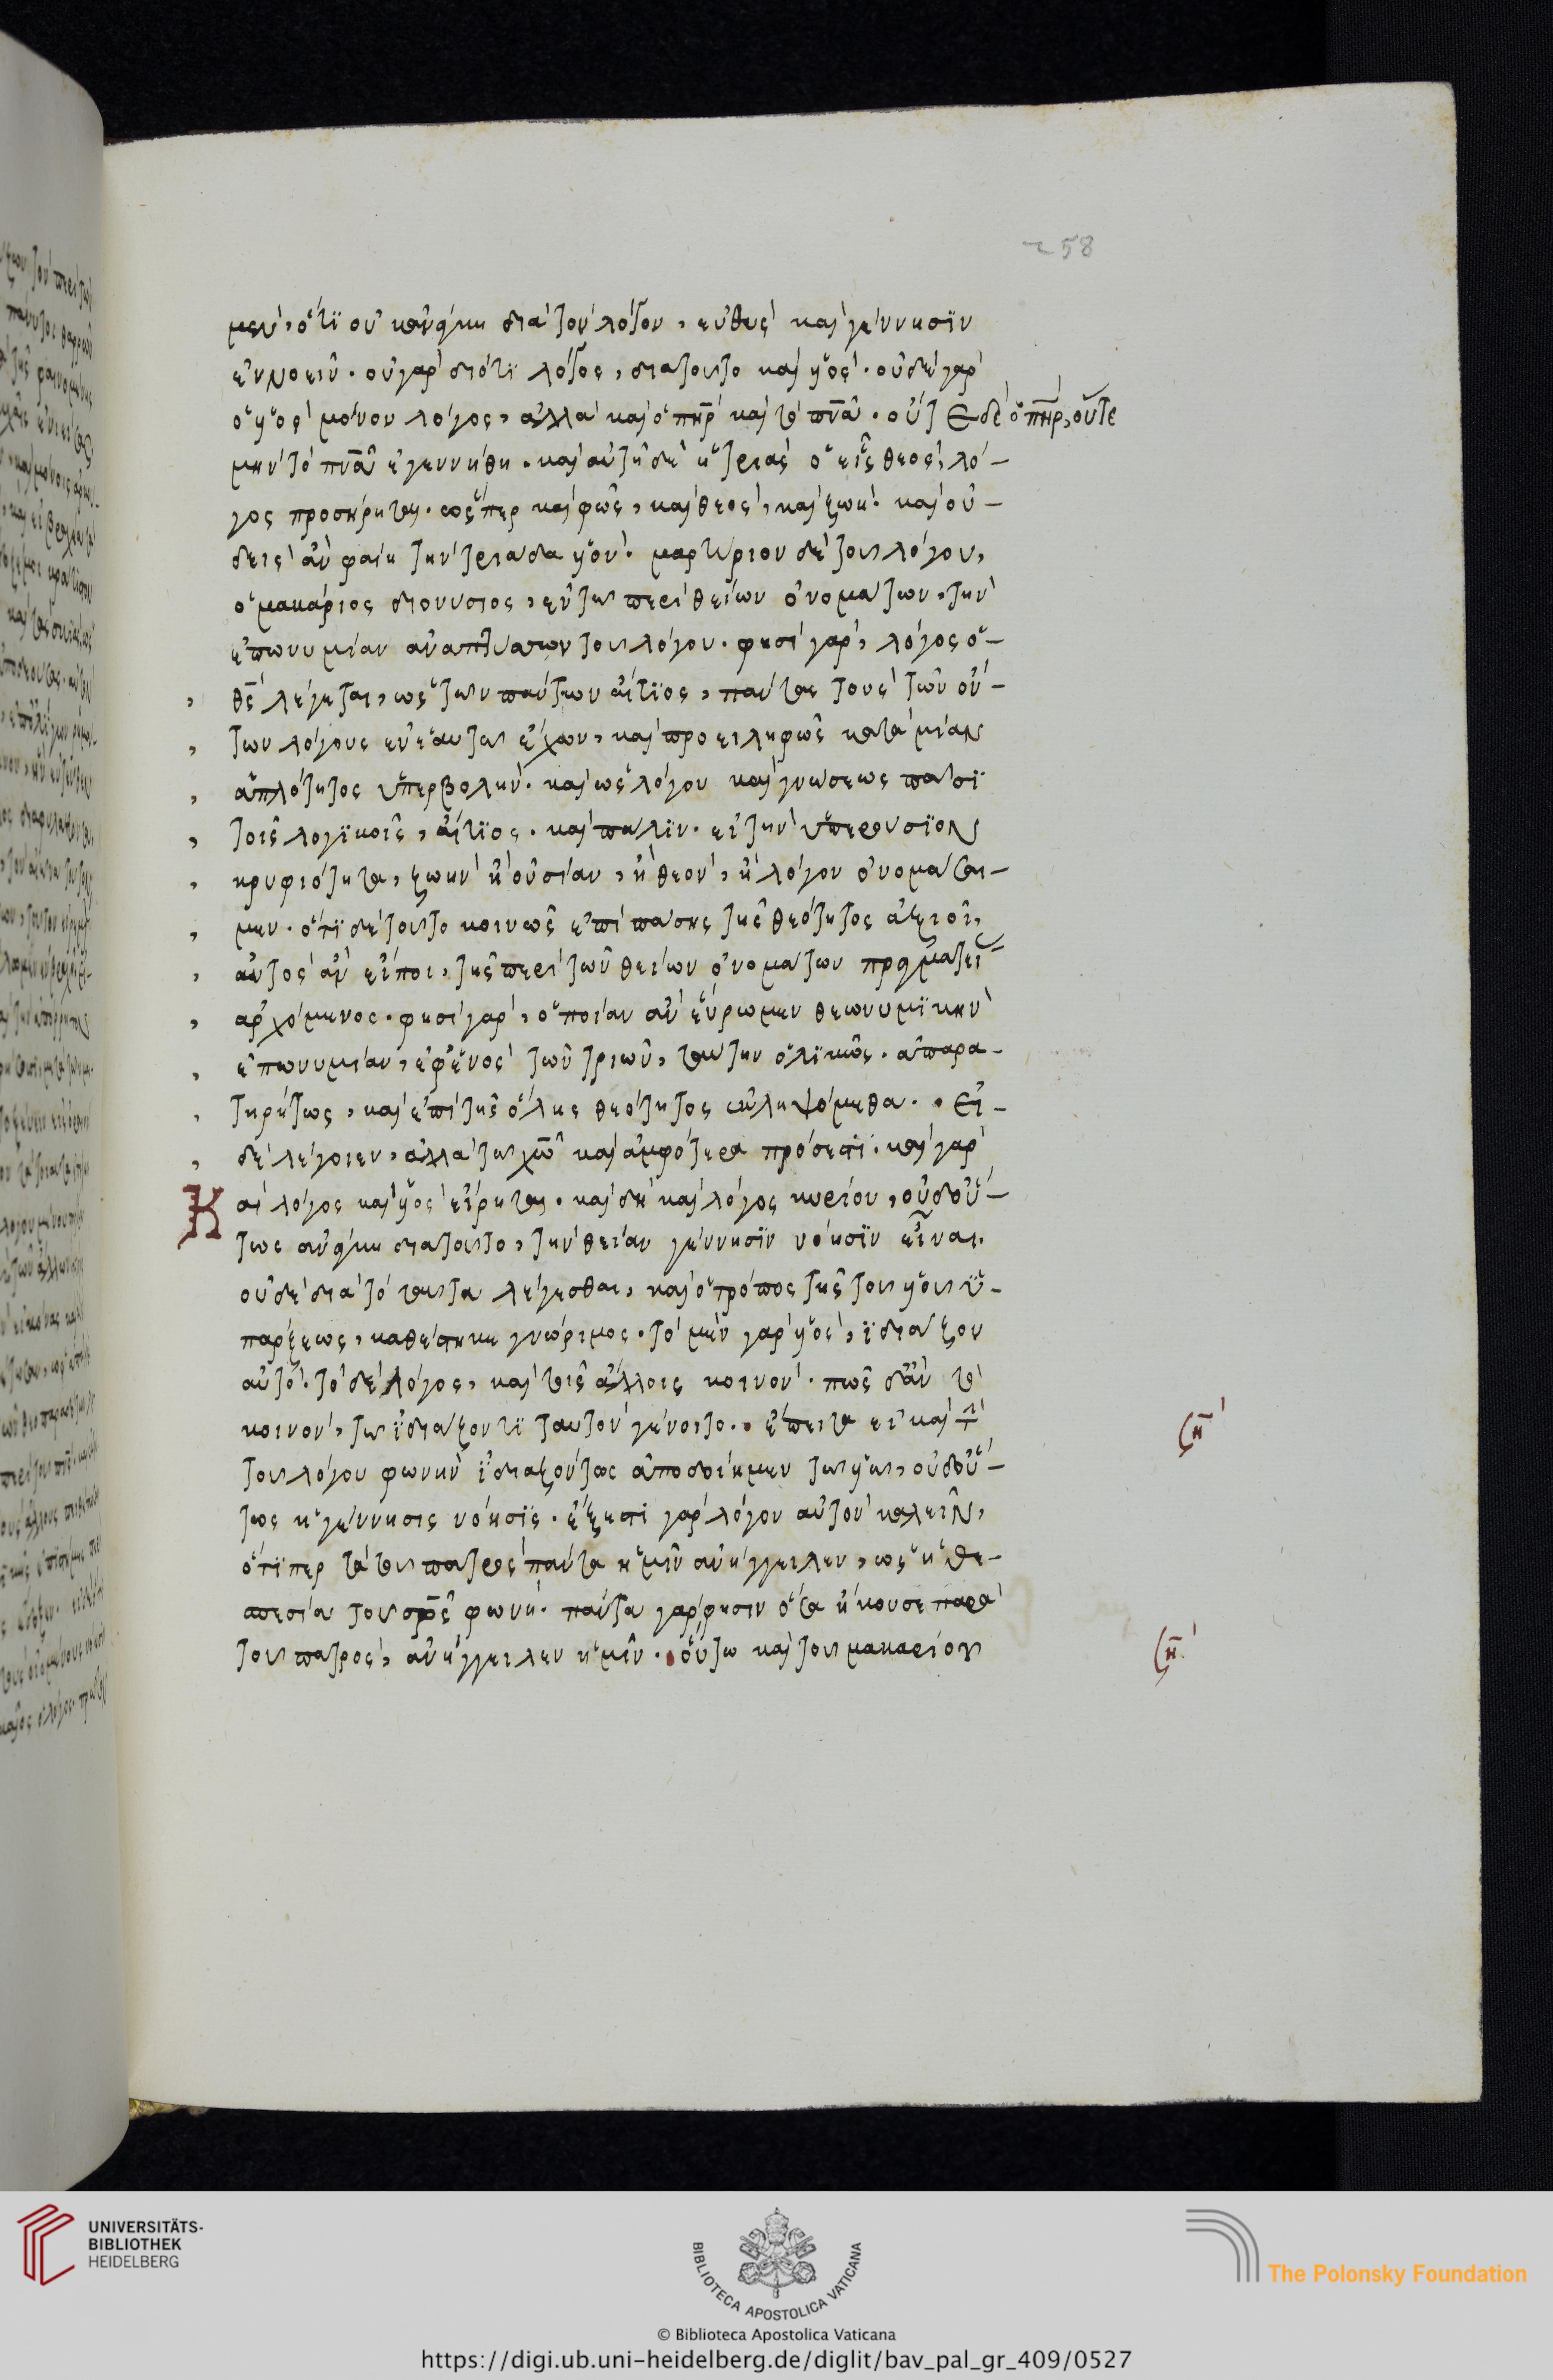 258
μεν· ὅτι οὐκ ἀνάγκη διὰ τὸν λόγον, εὐθὺς καὶ γέννησιν
ἐννοεῖν. οὐ γὰρ διότι λόγος, διὰ τοῦτο καὶ υἱός. οὐδὲ γὰρ
ὁ υἱὸς μόνον λόγος, ἀλλὰ καὶ ὁ πηρ καὶ τὸ πνα. οὔτ ἐδὲ ὁ πηρ, οὔτε
μὴν τὸ πνα ἐγεννήθη. καὶ αὐτὴ δὲ ἡ τριὰς ὁ εἷς θεός, λό–
γος προσείρηται. ὥσπερ καὶ φῶς, καὶ θεός, καὶ ζωή. καὶ οὐ–
δεὶς ἂν φαίη τὴν τριάδα υἱόν. μαρτύριον δὲ τοῦ λόγου,
ὁ μακάριος διονύσιος, ἐν τῷ περὶ θείων ὀνομάτων, τὴν
ἐπωνυμίαν ἀναπτύσσων τοῦ λόγου. φησὶ γάρ, λόγος ὁ–
θς λέγεται, ὡς τῶν πάντων αἴτιος, πάντας τοὺς τῶν ὄν–
των λόγους ἐν ἑαυτῷ ἔχων, καὶ προειληφὼς κατὰ μίαν
ἁπλότητος ὑπερβολήν. καὶ ὡς λόγου καὶ γνώσεως πᾶσι
τοῖς λογικοῖς, αἴτιος. καὶ πάλιν. εἰ τὴν ὑπερούσιον
κρυφιότητα, ζωὴν ἢ οὐσίαν, ἢ θεόν, ἢ λόγον ὀνομάσαι–
μεν. ὅτι δὲ τοῦτο κοινῶς ἐπὶ πάσης τῆς θεότητος ἀξιοῖ,
αὐτὸς ἂν εἴποι, τῆς περὶ τῶν θείων ὀνομάτων πραγματεί
ἀρχόμενος. φησὶ γάρ, ὁποίαν ἂν εὕρωμεν θεωνυμικὴν
ἐπωνυμίαν, ἐφ' ἑνὸς τῶν τριῶν, ταύτην ὁλικῶς. ἀπαρα–
τηρήτως, καὶ ἐπὶ τῆς ὅλης θεότητος ἐκληψόμεθα. εἰ–
δὲ λέγοιεν, ἀλλὰ τῷ χῶ καὶ ἀμφότερα πρόσεστι. καὶ γὰρ
Kαὶ λόγος καὶ υἱὸς εἴρηται. καὶ δὴ καὶ λόγος κυρίου, οὐδ' οὕ–
τως ἀνάγκη διὰ τοῦτο, τὴν θείαν γέννησιν νόησιν εἶναι.
οὐδὲ διὰ τὸ ταῦτα λέγεσθαι, καὶ ὁ τρόπος τῆς τοῦ υἱοῦ ὑ–
πάρξεως, καθέστηκε γνώριμος. τὸ μὲν γὰρ υἱός, ἰδιάζον
αὐτό. τὸ δὲ λόγος, καὶ τοῖς ἄλλοις κοινόν. πῶς δ' ἂν τὸ
κοινόν, τῷ ἰδιάζοντι ταυτὸν γένοιτο. ἔπειτα εἰ καὶ τὴν
τοῦ λόγου φωνὴν ἰδιαζόντως ἀποδοίημεν τῷ υἱῷ, οὐδ' οὕ–
τως ἡ γέννησις νόησις. ἔξεστι γὰρ λόγον αὐτὸν καλεῖν,
ὅτιπερ τὰ τοῦ πατρὸς πάντα ἡμῖν ἀνήγγειλεν, ὡς ἡ θε–
σπεσία τοῦ σρς φωνή. πάντα γάρ φησιν ὅσα ἤκουσε παρὰ
τοῦ πατρός, ἀνήγγειλεν ἡμῖν. οὕτω καὶ τοῦ μακαρίου
UNIVERSITÄTS-
BIBLIOTHEK
HEIDELBERG
BIBLIOTECA APOSTOLICA VATICANA
The Polonsky Foundation
© Biblioteca Apostolica Vaticana
https://digi.ub.uni-heidelberg.de/diglit/bav_pal_gr_409/0527